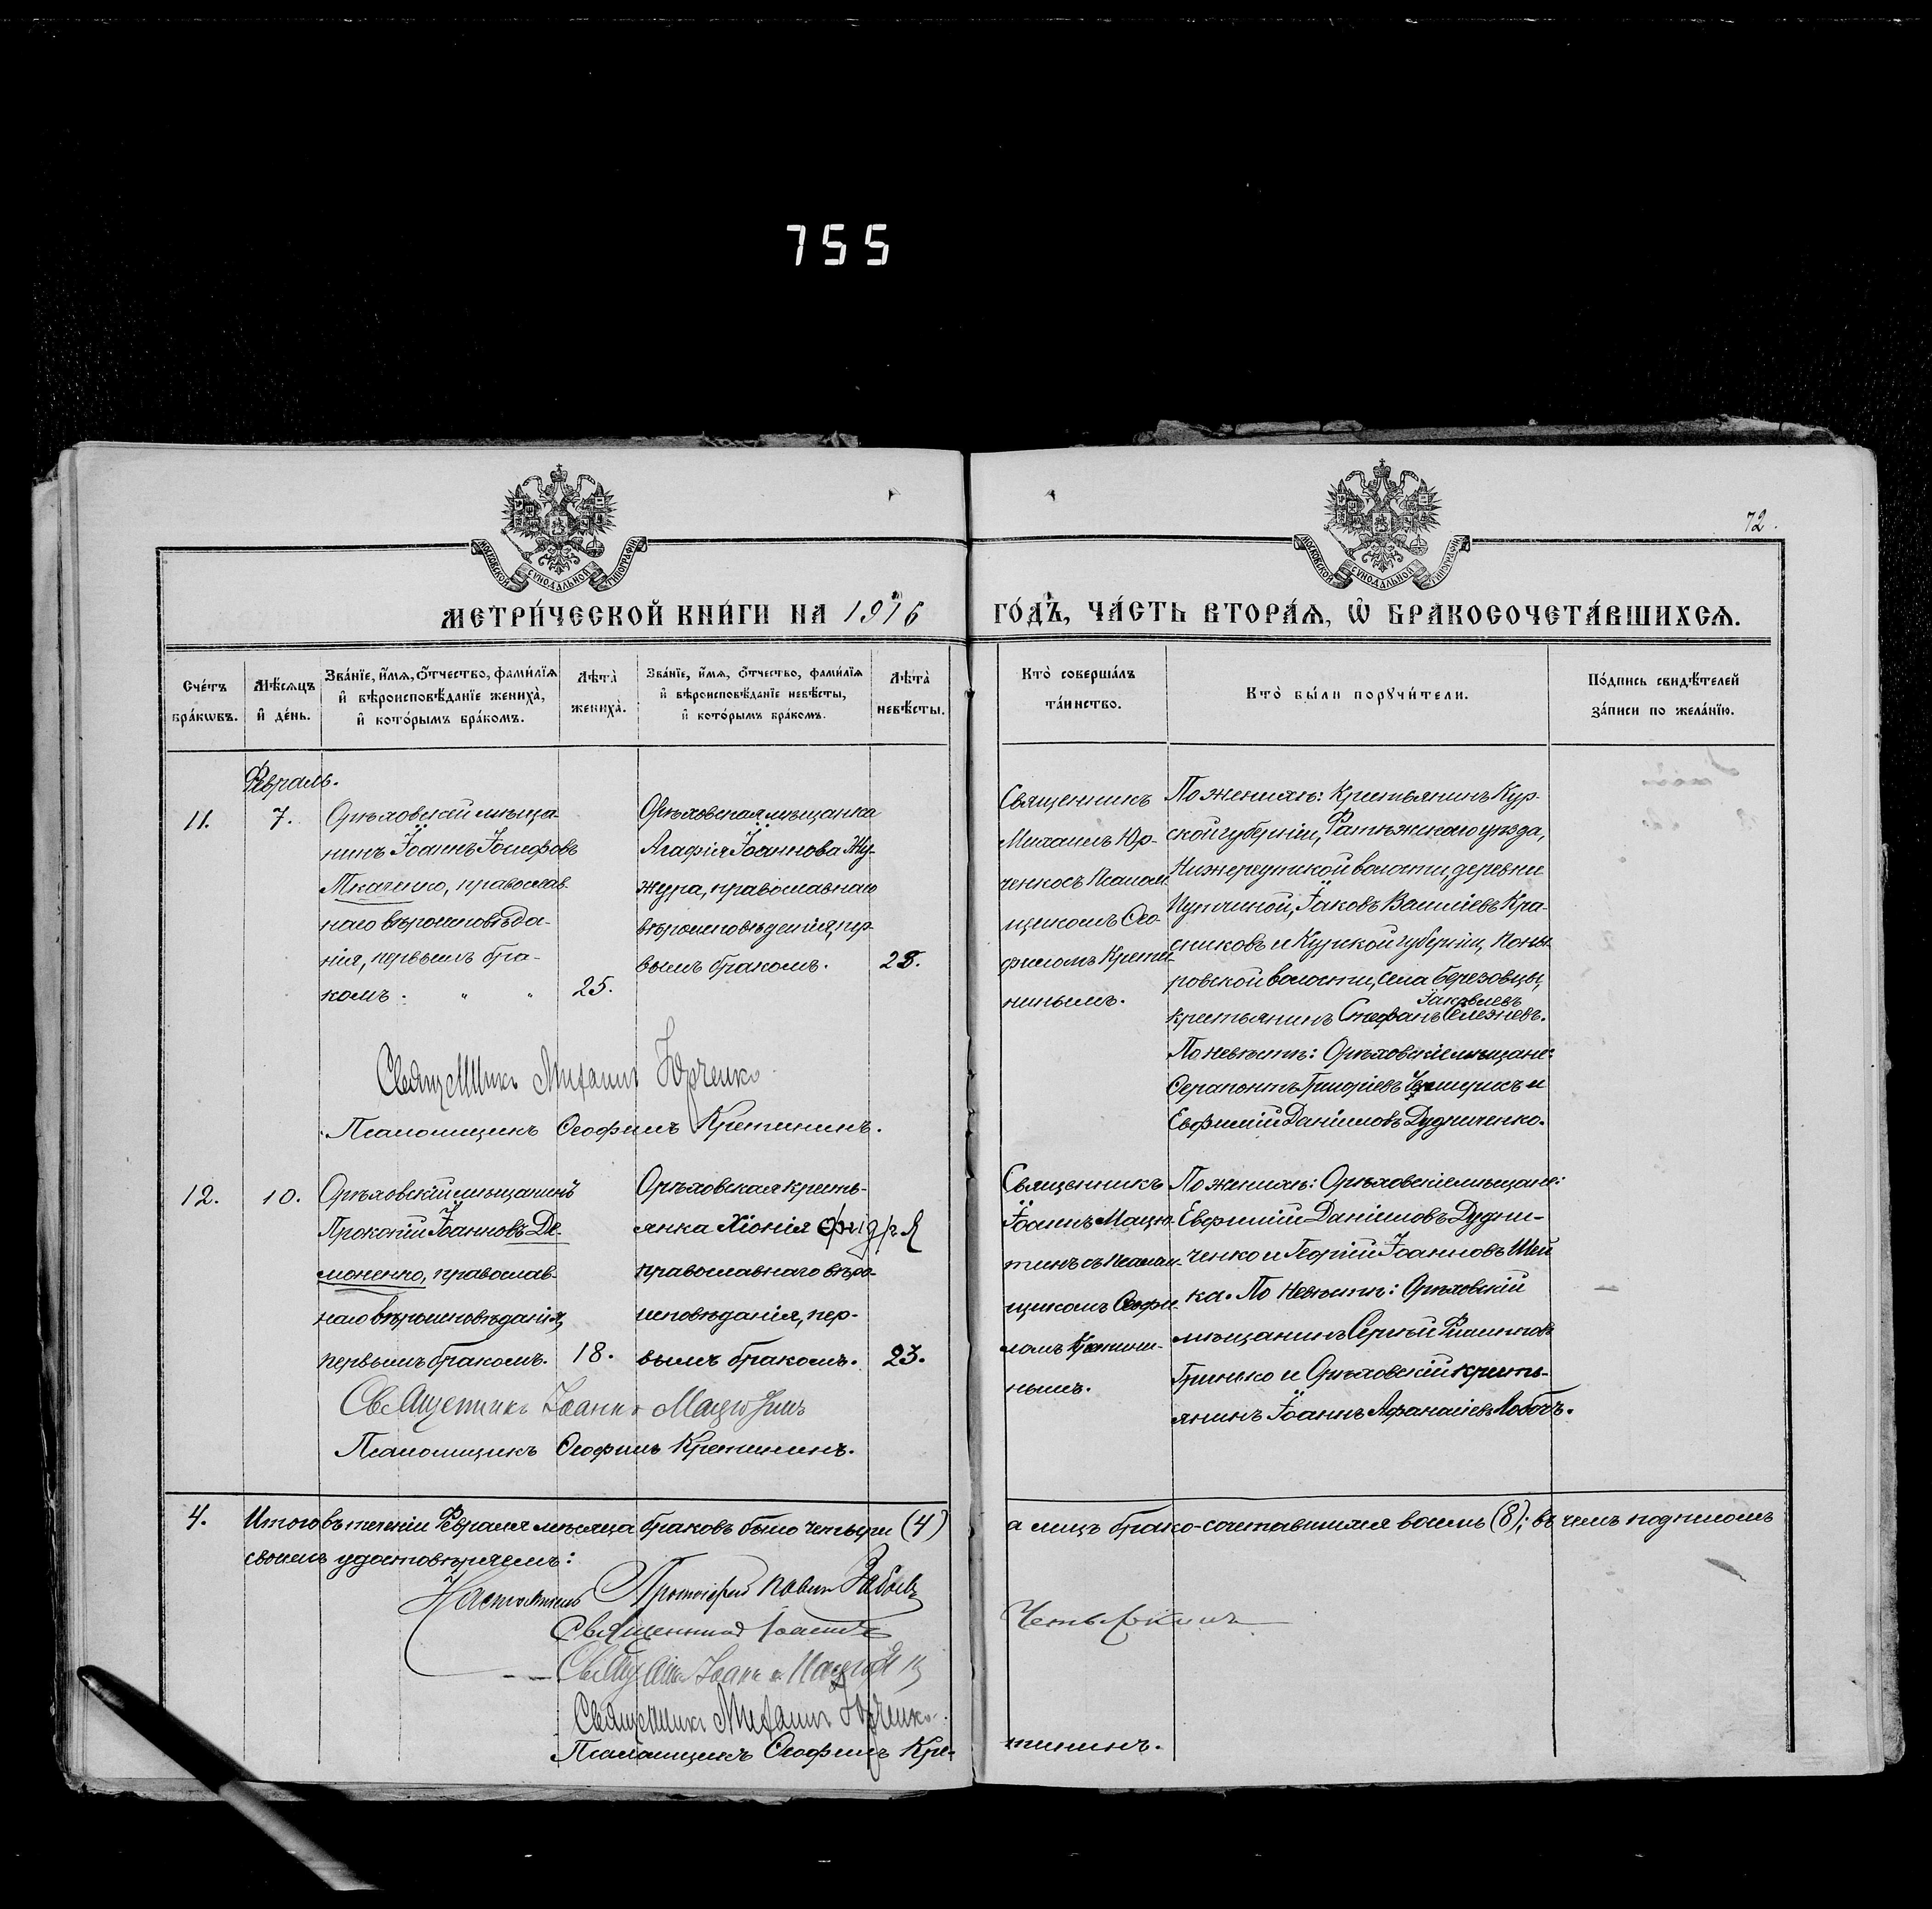 755
72.
МОСКОВСКОЙ СУНОДАЛЬНОЙ ТИПОГРАФІИ
МОСКОВСКОЙ СУНОДАЛЬНОЙ ТИПОГРАФІИ
МЕТРИ́ЧЕСКОЙ КНИ́ГИ НА 1916
ГО́ДЪ, ЧА́СТЬ ВТОРА́Ѧ, Ѡ БРАКОСОЧЕТА́ВШИХСѦ.
Сче́тъ бра́кѡвъ.
Мѣ́сѧцъ и҆ де́нь.
Зва́нїе, и҆́мѧ, ѻ҆́тчество, фами́лїѧ
и҆ вѣроисповѣ́данїе жениха̀,
и҆ кото́рымъ бра́комъ.
Лѣта̀ жениха̀.
Зва́нїе, и҆́мѧ, ѻ҆́тчество, фами́лїѧ
и҆ вѣроисповѣ́данїе невѣ́сты,
и҆ кото́рымъ бра́комъ.
Лѣта̀ невѣ́сты.
Кто̀ соверша́лъ
та́инство.
Кто̀ бы́ли порꙋчи́тели.
По́дпись свидѣ́телей
за́писи по жела́нїю.
Февраль.
11.
7.
Орѣховскій мѣща-
нинъ Іоаннъ Іосифовъ
Ткаченко, православ-
наго вѣроисповѣда-
нія, первымъ бра-
комъ.
25.
Орѣховская мѣщанка
Агафія Іоаннова Жу-
жура, православнаго
вѣроисповѣданія, пер-
вымъ бракомъ.
28.
Священникъ
Михаилъ Юр-
ченко съ Псалом-
щикомъ Ѳео-
филомъ Крети-
нинымъ.
По женихѣ: Крестьянинъ Кур-
ской губерніи, Фатежскаго уѣзда,
Нижнереутской волости, деревни
Іаковъ Василіевъ Кра-
сниковъ и Курской губерніи, Поны-
ровской волости, села Березовцы,
Іаковлевъ
крестьянинъ Стефанъ Селезневъ.
По невѣстѣ: Орѣховскіе мѣщане:
Серапонтъ Григоріевъ и
Евфимій Даніиловъ Дудниченко.
Священникъ Михаилъ Юрченко
Псаломщикъ Ѳеофилъ Кретининъ.
12.
10.
Орѣховскій мѣщанинъ
Прокопій Іоанновъ Де-
моненко, православ-
наго вѣроисповѣданія,
первымъ бракомъ.
18.
Орѣховская кресть-
янка Хіонія
православнаго вѣро-
исповѣданія, пер-
вымъ бракомъ.
23.
Священникъ
Іоаннъ Мацю-
тинъ съ Псалом-
щикомъ Ѳеофи-
ломъ Кретини-
нымъ.
По женихѣ: Орѣховскіе мѣщане:
Евфимій Даніиловъ Дудни-
ченко и Георгій Іоанновъ Шей-
ка. По невѣстѣ: Орѣховскій
мѣщанинъ Сергѣй Филипповъ
Гринько и Орѣховскій кресть-
янинъ Іоаннъ Аѳанасіевъ Лобачъ.
Священникъ Іоаннъ Мацютинъ
Псаломщикъ Ѳеофилъ Кретининъ.
4.
Итого въ теченіи Февраля мѣсяца браковъ было четыре (4)
а лицъ брако-сочетавшихся восемь (8); въ чемъ подписомъ
своимъ удостовѣряемъ:
Настоятель Протоіерей Павелъ
Священникъ Іоаннъ
Четыркинъ
Священникъ Іоаннъ Мацютинъ
Священникъ Михаилъ Юрченко
Псаломщикъ Ѳеофилъ Кре-
тининъ.